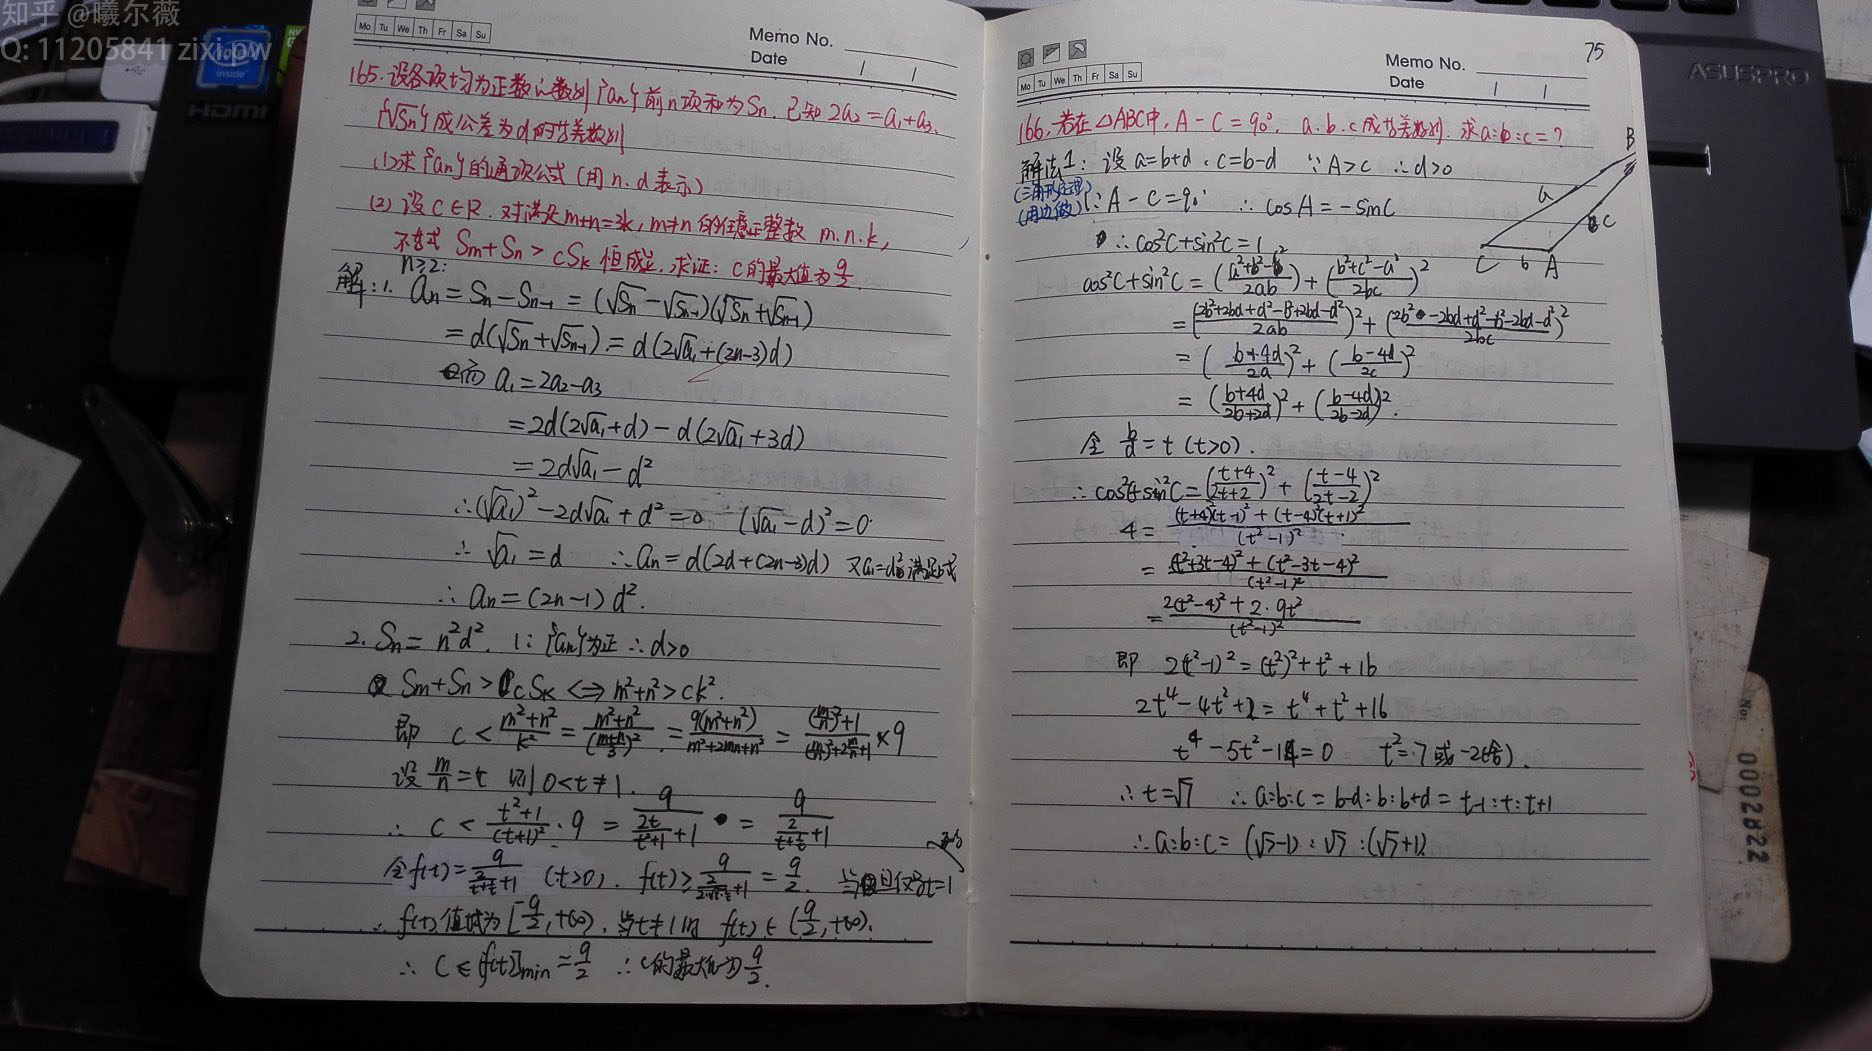 知乎 @曦尔薇
Q: 11205841 zixi.pw
intel inside
HDMI
Mo Tu We Th Fr Sa Su
Memo No.
Date / /
165. 设各项均为正数的数列{an}前n项和为Sn. 已知 2a₂=a₁+a₃.
{√Sn}成公差为d的等差数列
(1)求{an}的通项公式(用n.d表示)
(2) 设C∈R. 对满足m+n=3k, m≠n的任意正整数 m.n.k,
不等式 Sm+Sn > cSk 恒成立. 求证: c的最大值为 9/2.
n≥2:
解:1. an = Sn-Sn-1 = (√Sn-√Sn-1)(√Sn+√Sn-1)
= d(√Sn+√Sn-1) = d(2√a₁+(2n-3)d)
而 a₁=2a₂-a₃
=2d(2√a₁+d) - d(2√a₁+3d)
= 2d√a₁-d²
∴(√a₁)²-2d√a₁+d²=0 (√a₁-d)²=0
∴ √a₁=d ∴an=d(2d+(2n-3)d) 又a₁=d²满足上式
∴ an=(2n-1)d².
2. Sn= n²d². ∵{an}为正 ∴d>0
Sm+Sn > cSk ⟺ m²+n²>ck².
即 c < (m²+n²)/k² = (m²+n²)/((m+n)/3)² = 9(m²+n²)/(m²+2mn+n²) = ((m/n)²+1)/((m/n)²+2m/n+1) ×9
设 m/n=t 则 0<t≠1.
∴ c < (t²+1)/(t+1)² · 9 = 9/(2t/(t²+1)+1) = 9/(2/(t+1/t)+1)
令f(t)=9/(2/(t+1/t)+1) (t>0). f(t)≥9/(2/(2√t·1/t)+1)=9/2. 当且仅当t=1
∴ f(t)值域为[9/2,+∞). 当t≠1时 f(t)∈(9/2,+∞).
∴ C≤[f(t)]min=9/2 ∴c的最大值为9/2.
75
ASUSPRO
Mo Tu We Th Fr Sa Su
Memo No.
Date / /
166. 若在△ABC中, A-C=90°. a.b.c成等差数列. 求a:b:c=?
解法1: 设 a=b+d. c=b-d ∵A>C ∴d>0
(用边做) ∵A-C=90° ∴cosA=-sinC
∴cos²C+sin²C=1
cos²C+sin²C = ((a²+b²-c²)/2ab)²+((b²+c²-a²)/2bc)²
=((2b²+2bd+d²-b²+2bd-d²)/2ab)²+((2b²-2bd+d²-b²-2bd-d²)/2bc)²
= ((b+4d)/2a)²+((b-4d)/2c)²
= ((b+4d)/(2b+2d))²+((b-4d)/(2b-2d))².
令 b/d=t (t>0).
∴ cos²C+sin²C=((t+4)/(2t+2))²+((t-4)/(2t-2))²
4 = ((t+4)²(t-1)²+(t-4)²(t+1)²)/(t²-1)²
= ((t²+3t-4)²+(t²-3t-4)²)/(t²-1)²
= (2(t²-4)²+2·9t²)/(t²-1)²
即 2(t²-1)²=(t²)²+t²+16
2t⁴-4t²+2=t⁴+t²+16
t⁴-5t²-14=0 t²=7或-2(舍).
∴t=√7 ∴a:b:c=b-d:b:b+d=t-1:t:t+1
∴a:b:c=(√7-1):√7:(√7+1)
A
B
C
a
b
c
No:
0002822